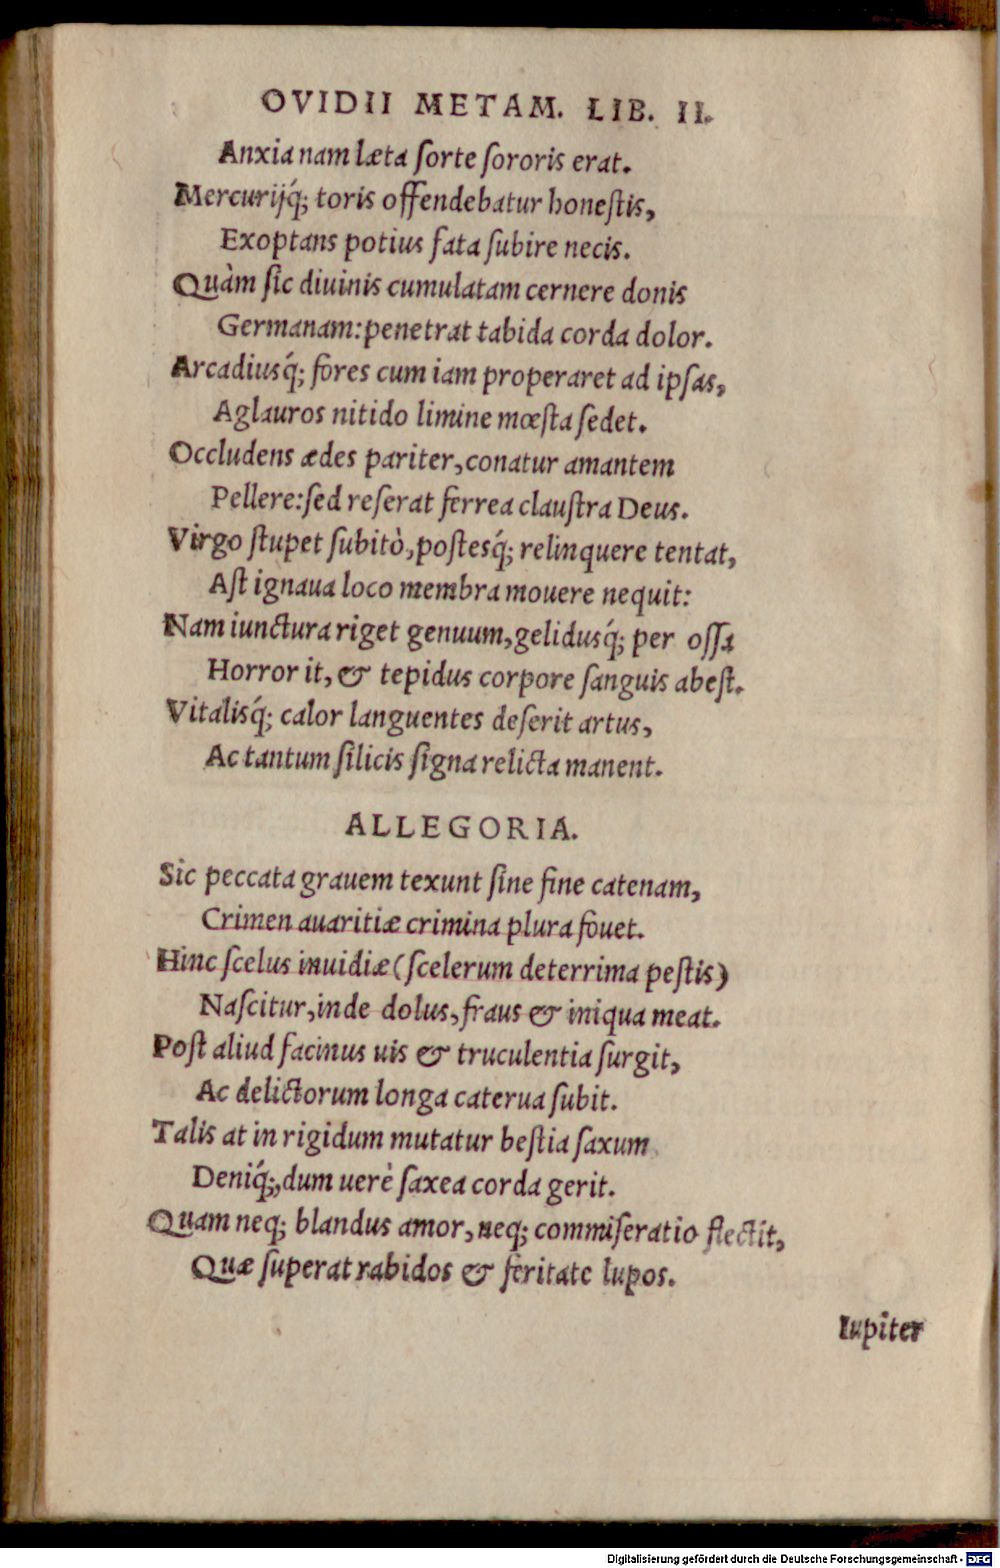 OVIDII METAM. LIB. II.
Anxia nam læta ſorte ſororis erat.
Mercurijq́; toris offendebatur honeſtis,
Exoptans potius fata ſubire necis.
Quàm ſic diuinis cumulatam cernere donis
Germanam: penetrat tabida corda dolor.
Arcadiusq́; fores cum iam properaret ad ipſas,
Aglauros nitido limine mœſta ſedet.
Occludens ædes pariter, conatur amantem
Pellere: ſed reſerat ferrea clauſtra Deus.
Virgo ſtupet ſubitò, poſtesq́; relinquere tentat,
Aſt ignaua loco membra mouere nequit:
Nam iunctura riget genuum, gelidusq́; per oſſa
Horror it, & tepidus corpore ſanguis abeſt.
Vitalisq́; calor languentes deſerit artus,
Ac tantum ſilicis ſigna relicta manent.
ALLEGORIA.
Sic peccata grauem texunt ſine fine catenam,
Crimen auaritiæ crimina plura fouet.
Hinc ſcelus inuidiæ (ſcelerum deterrima peſtis)
Naſcitur, inde dolus, fraus & iniqua meat.
Poſt aliud facinus uis & truculentia ſurgit,
Ac delictorum longa caterua ſubit.
Talis at in rigidum mutatur beſtia ſaxum
Deniq́;, dum uerè ſaxea corda gerit.
Quam neq; blandus amor, neq; commiſeratio flectit,
Quæ ſuperat rabidos & feritate lupos.
Iupiter
Digitalisierung gefördert durch die Deutsche Forschungsgemeinschaft - DFG